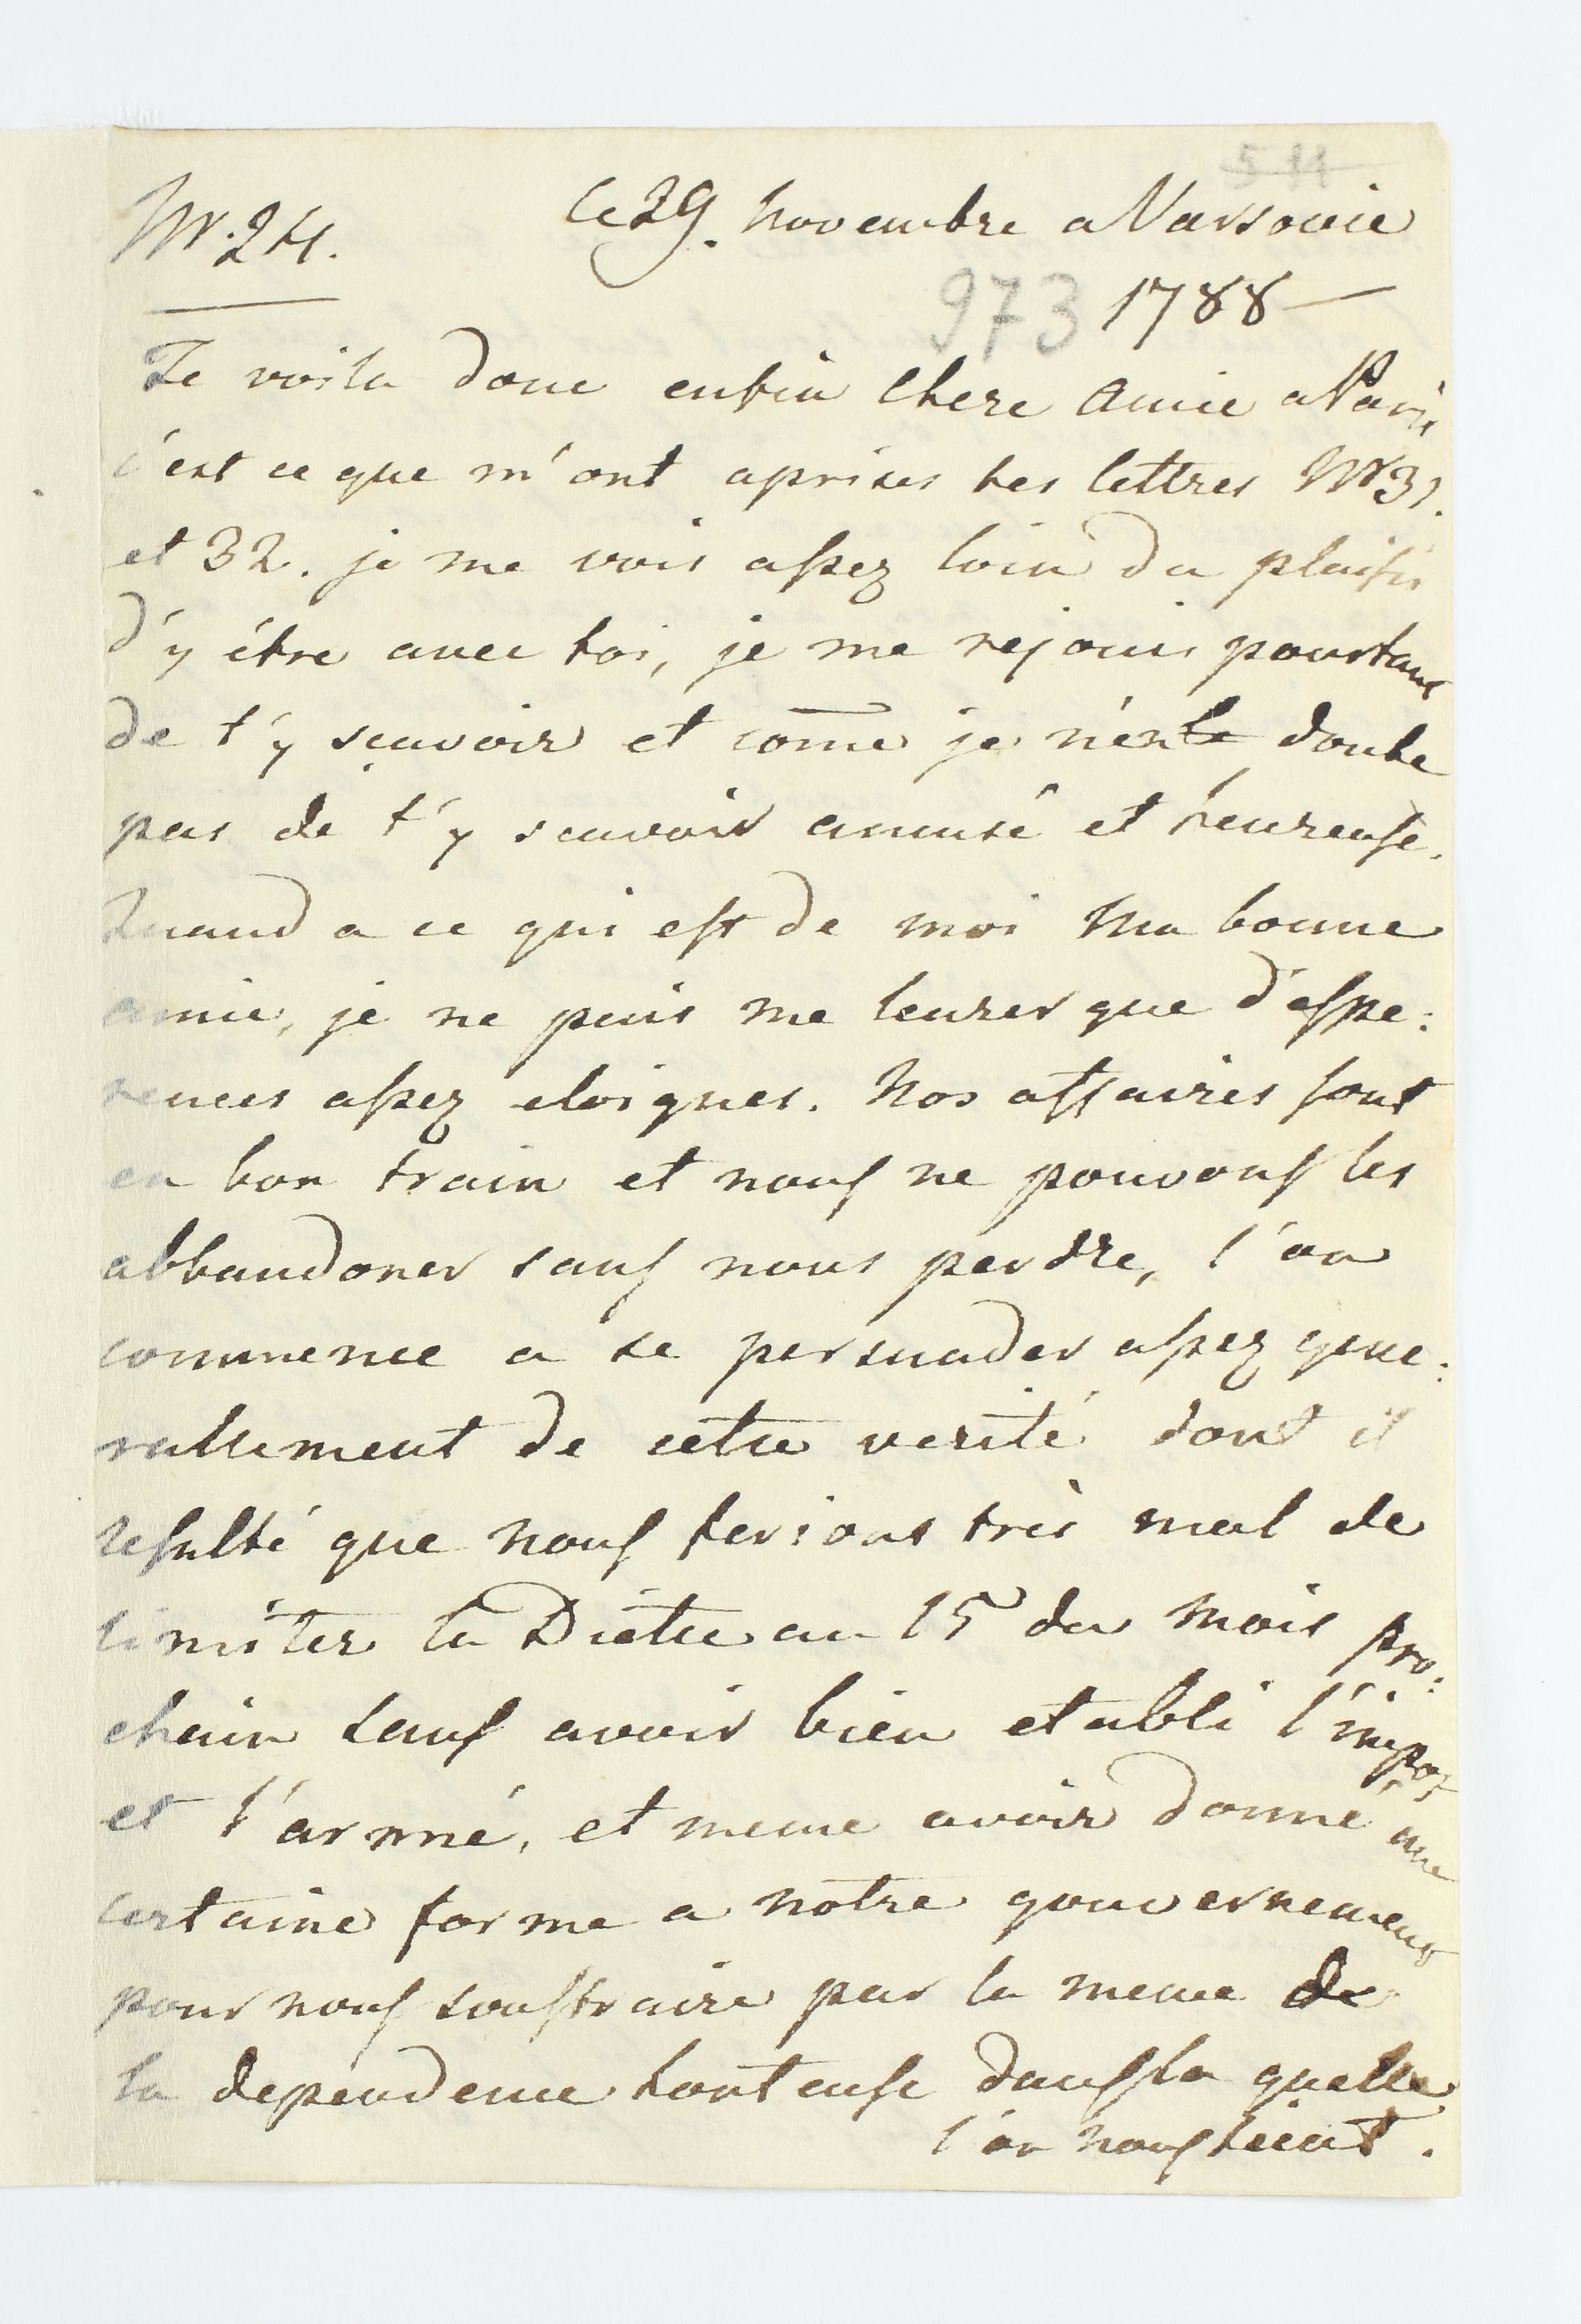 511
Nr. 24.
Ce 29. novembre a Varsovie
973 1788 —
Te voila donc enfin Chere Amie a Paris
c'est ce que m'ont aprises tes lettres Nr 31.
et 32. je me vois assez loin du plaisir
d'y étre avec toi, je me rejouis pourtant
de t'y sçavoir et come je n'en doute
pas de t'y scavoir amusé et heureuse.
Quand a ce qui est de moi Ma bonne
amie, je ne puis me leurer que d'espe:
rences assez eloignes. Nos affaires sont
en bon train et nous ne pouvons les
abbandoner sans nous perdre, l'on
commence a se persuader assez gene:
rallement de cette verité dont il
resulté que nous ferions très mal de
limiter la Diette au 15 du Mois pro:
chain sans avoir bien etabli l'impot
et l'armé, et meme avoir donné une
certaine forme a notre gouvernement
pour nous soustraire par la meme de
la dependence honteuse dans la quelle
l'on nous tient.